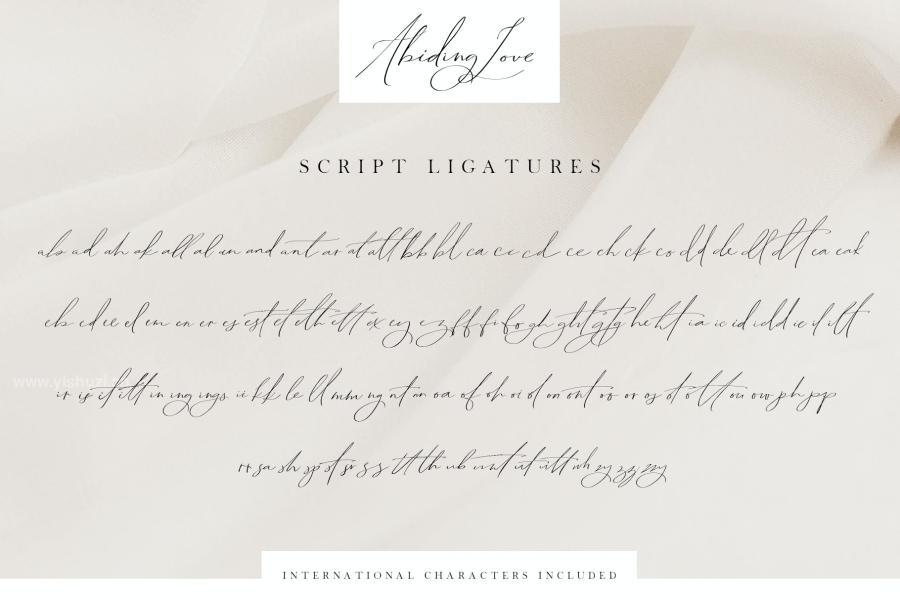 Abiding Love
SCRIPT LIGATURES
ab ad ah ak all al an and ant ar at att bb bl ca cc cd ce ch ck co dd de dl dt ea eak
eb ed ee el em en er es est et eth ett ex ey ez ff fi fo gh ght gty he ht ia ic id idd ie il ilt
ir is it itt in ing ings ii kk le ll mm ng nt on oa of oh oi ol on ont oo or os ot ott ou ow ph pp
rt sa sh sp st sr ss tt th ub unt ut utt wh zy zz zzy
INTERNATIONAL CHARACTERS INCLUDED
www.yishuzi.